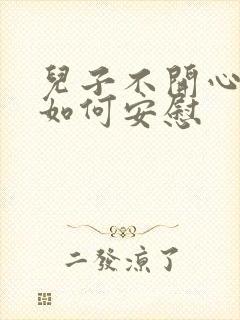 兒子不開心
如何安慰
二發涼了